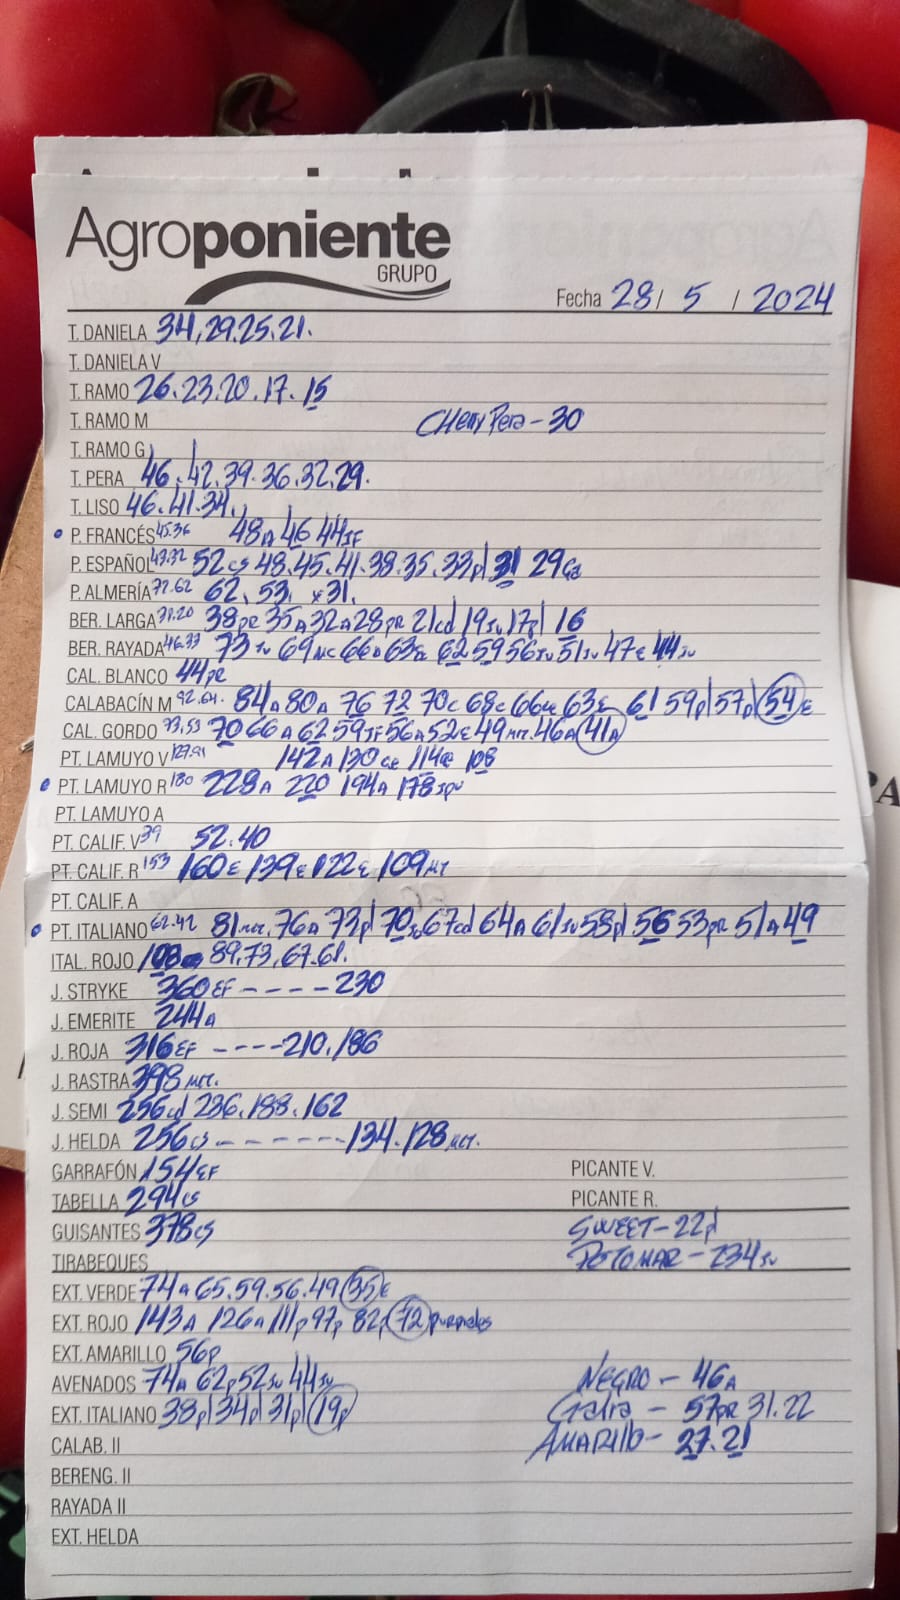 Agroponiente
GRUPO
Fecha 28/ 5 / 2024
T. DANIELA 34,29.25.21.
T. DANIELA V
T. RAMO 26.23.20.17.15
T. RAMO M CHerry Pera - 30
T. RAMO G
T. PERA 46.42.39.36.32.29.
T. LISO 46.41.34.
P. FRANCÉS 45.36 48A 46 44JF
P. ESPAÑOL 43.32 52cs 48.45.41.38.35.33p 31 29Ga
P. ALMERÍA 77.62 62.53. x31.
BER. LARGA 31.20 38PR 35A 32A 28PR 21cd 19Ju 17p 16
BER. RAYADA 46.33 73Ju 69MC 66A 63E 62 59 56Ju 51Ju 47E 44Ju
CAL. BLANCO 44PR
CALABACÍN M 92.64. 84A 80A 76 72 70C 68C 66 63E 61 59p 57p 54E
CAL. GORDO 73,53 70 66A 62 59JF 56A 52E 49MT. 46A 41A
PT. LAMUYO V 127.91 142A 130CE 114CE 108
PT. LAMUYO R 180 228A 220 194A 178
PT. LAMUYO A
PT. CALIF. V 39 52.40
PT. CALIF. R 153 160E 139E 122E 109MT
PT. CALIF. A
PT. ITALIANO 62.42 81MT. 76A 73p 70Ju 67cd 64A 61Ju 58p 56 53PR 51A 49
ITAL. ROJO 100 89,73,67.61.
J. STRYKE 360EF ---- 230
J. EMERITE 244A
J. ROJA 316EF ---- 210.186
J. RASTRA 398MT.
J. SEMI 256cd 236.188.162
J. HELDA 256cs ------- 134.128MT.
GARRAFÓN 154EF PICANTE V.
TABELLA 294cs PICANTE R.
GUISANTES 378cs SWEET - 22p
TIRABEQUES POTOMAR - 234Ju
EXT. VERDE 74A 65.59.56.49 35E
EXT. ROJO 143A 126A 111p 97p 82p 72
EXT. AMARILLO 56p
AVENADOS 74A 62p 52Ju 44Ju NEGRO - 46A
EXT. ITALIANO 38p 34p 31p 19p Galia - 57PR 31.22
CALAB. II AMARILLO - 27.21
BERENG. II
RAYADA II
EXT. HELDA